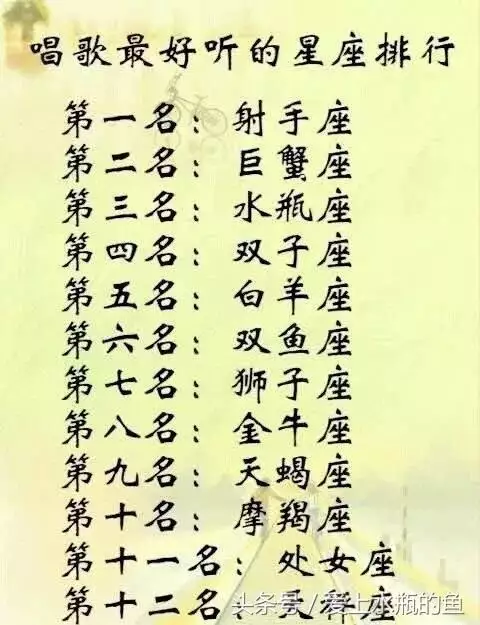 唱歌最好听的星座排行
第一名：射手座
第二名：巨蟹座
第三名：水瓶座
第四名：双子座
第五名：白羊座
第六名：双鱼座
第七名：狮子座
第八名：金牛座
第九名：天蝎座
第十名：摩羯座
第十一名：处女座
第十二名：天秤座
头条号/爱上水瓶的鱼